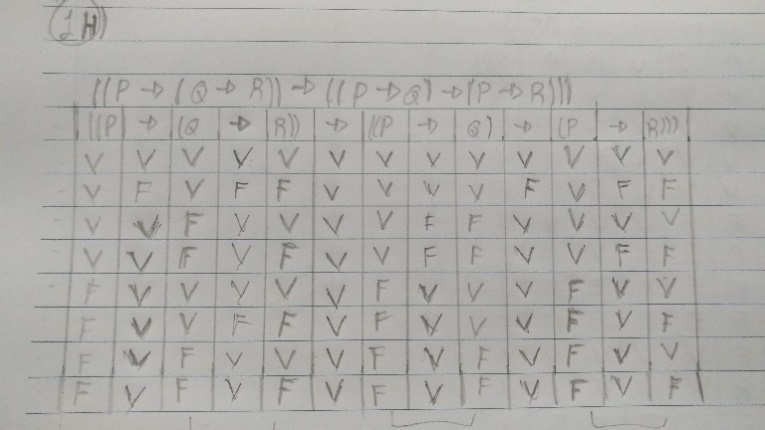 1H)
((P → (Q → R)) → ((P → Q) → (P → R)))
((P → (Q → R)) → ((P → Q) → (P → R)))
V V V V V V V V V V V V V
V F V F F V V V V F V F F
V V F V V V V F F V V V V
V V F V F V V F F V V F F
F V V V V V F V V V F V V
F V V F F V F V V V F V F
F V F V V V F V F V F V V
F V F V F V F V F V F V F